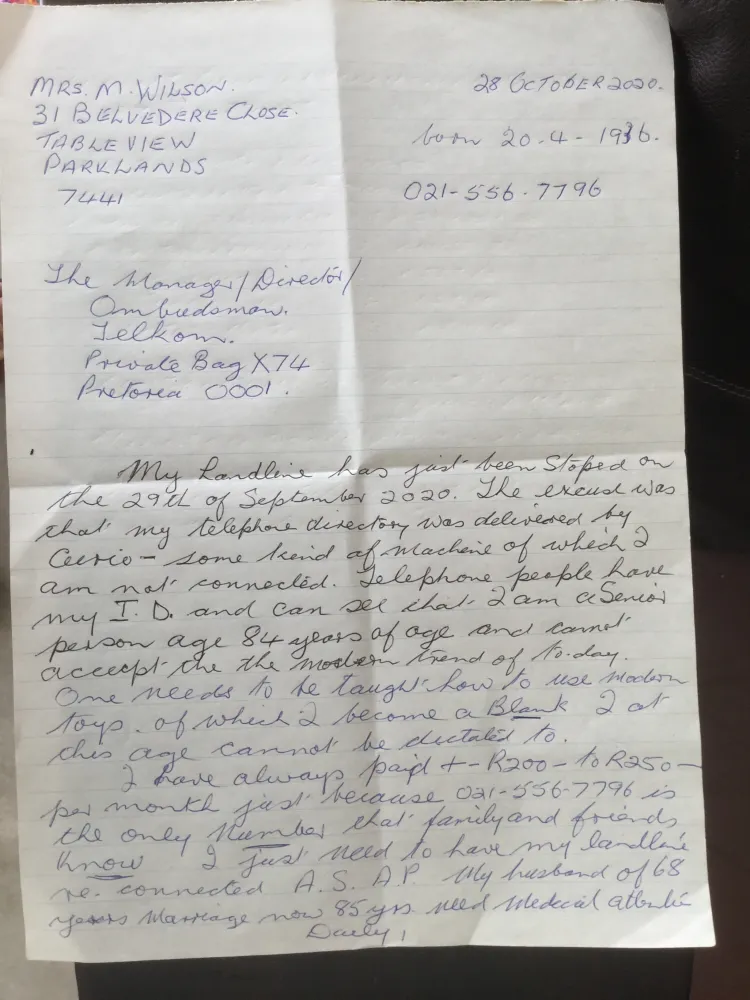 MRS. M. WILSON.
28 OCTOBER 2020.
31 BELVEDERE CLOSE.
TABLEVIEW
born 20.4-1936.
PARKLANDS
7441
021-556.7796
The Manager/Director/
Ombudsman.
Telkom.
Private Bag X74
Pretoria 0001.
My Landline has just been Stoped on
the 29th of September 2020. The excuse was
that my telephone directory was delivered by
some kind of Machine of which I
am not connected. Telephone people have
my I.D. and can see that I am a Senior
person age 84 years of age and cannot
the the modern trend of to-day.
One needs to be taught how to use modern
toys. of which I become a Blank I at
this age cannot be dictated to.
I have always paid +-R200-to R250-
per month just because 021-556-7796 is
the only Number that family and friends
Know I just need to have my landline
re-connected A.S.A.P. My husband of 68
years Marriage now 85yrs. need Medical
Daily,